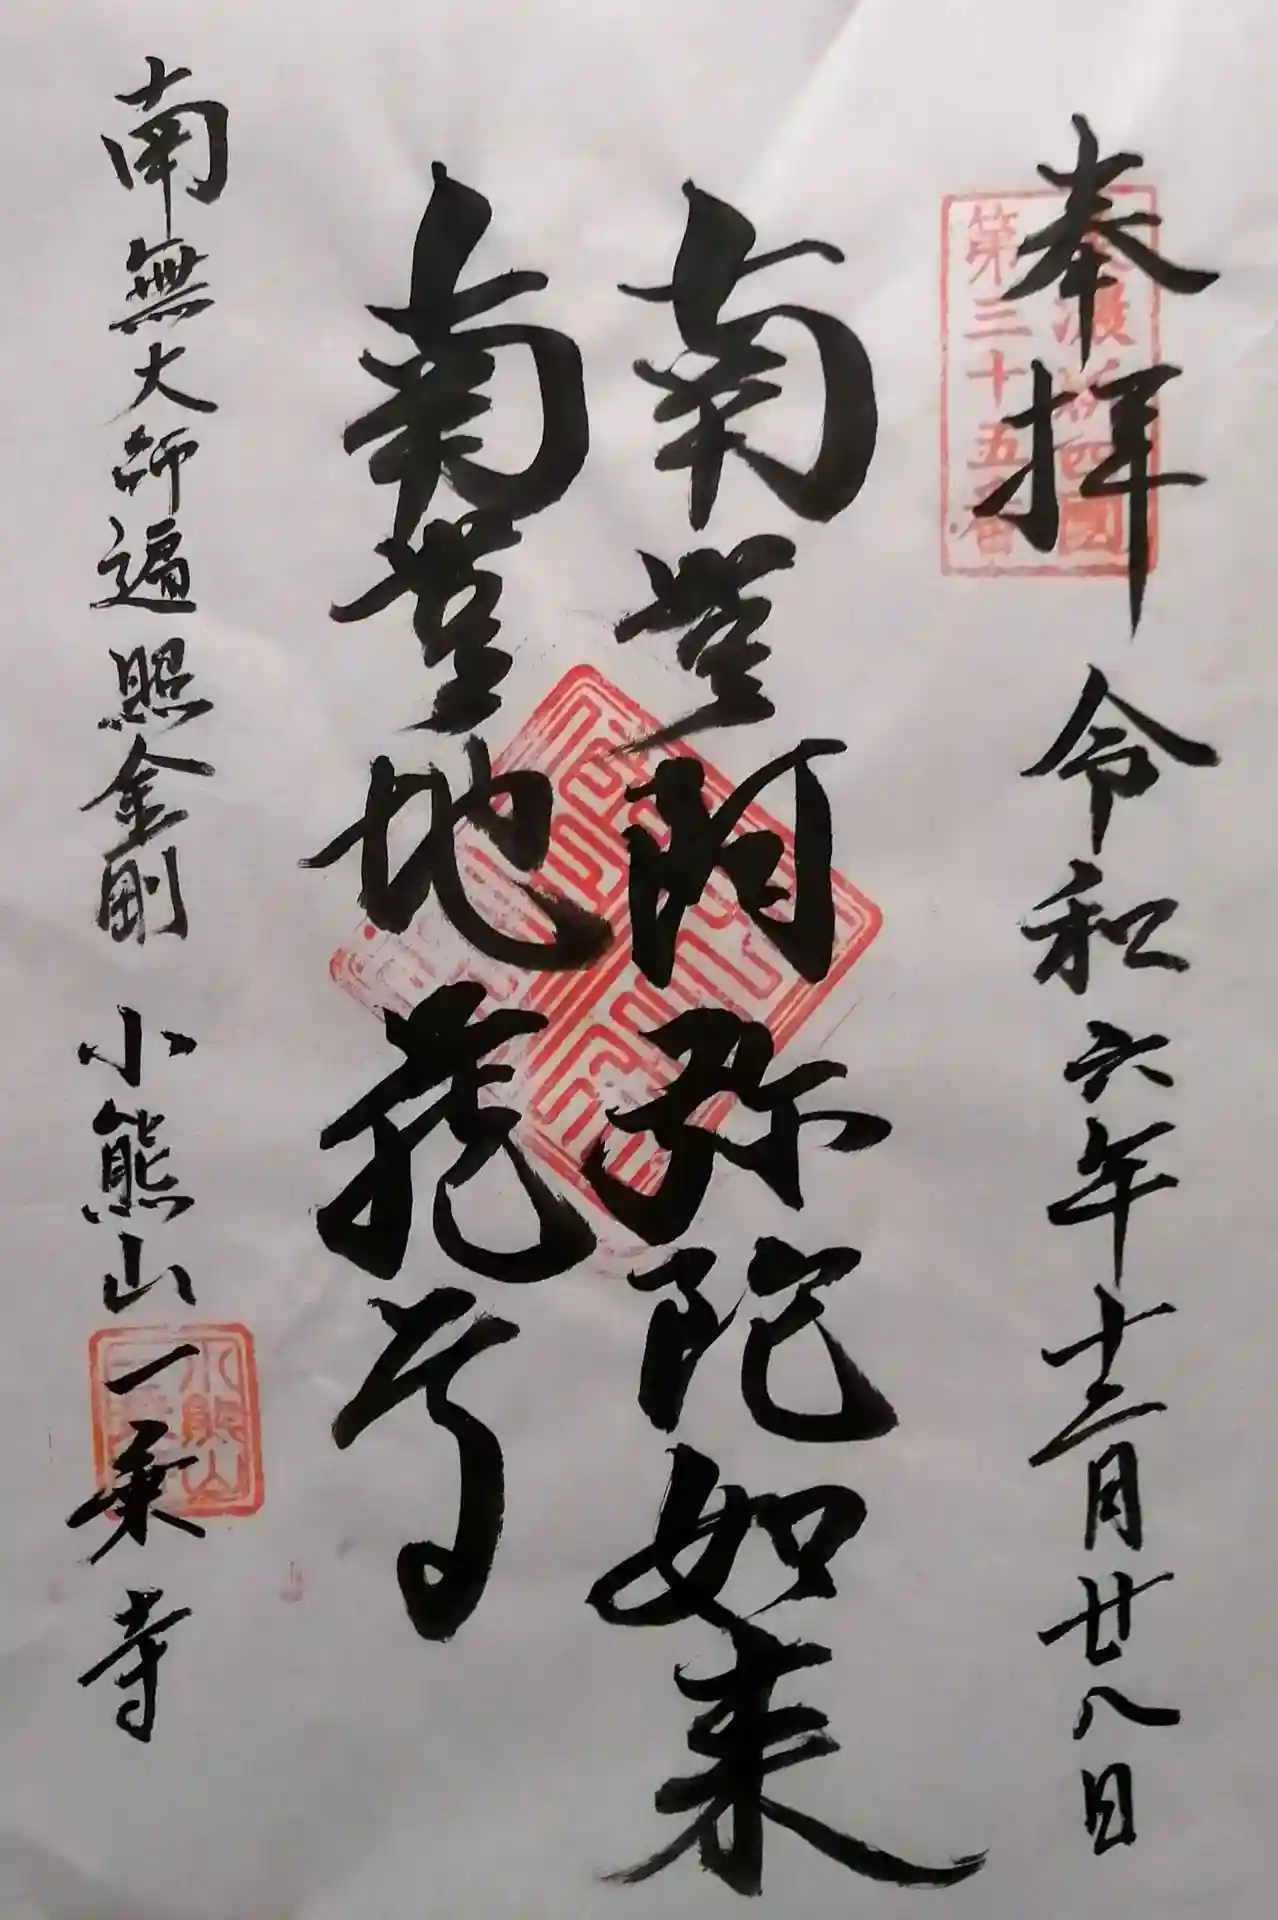 奉拝 令和六年十二月廿八日
第三十五番
南無阿弥陀如来
南無地蔵尊
南無大師遍照金剛 小熊山一乗寺
小熊山